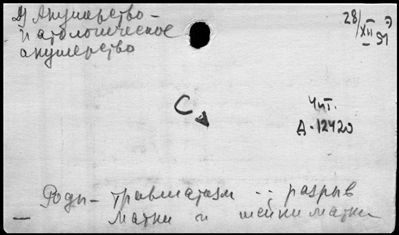 2) Акушерство -
патологическое
акушерство
28/XII - 51
С
Чит.
А-12420
Роды - травматизм :: разрыв
матки и шейки матки